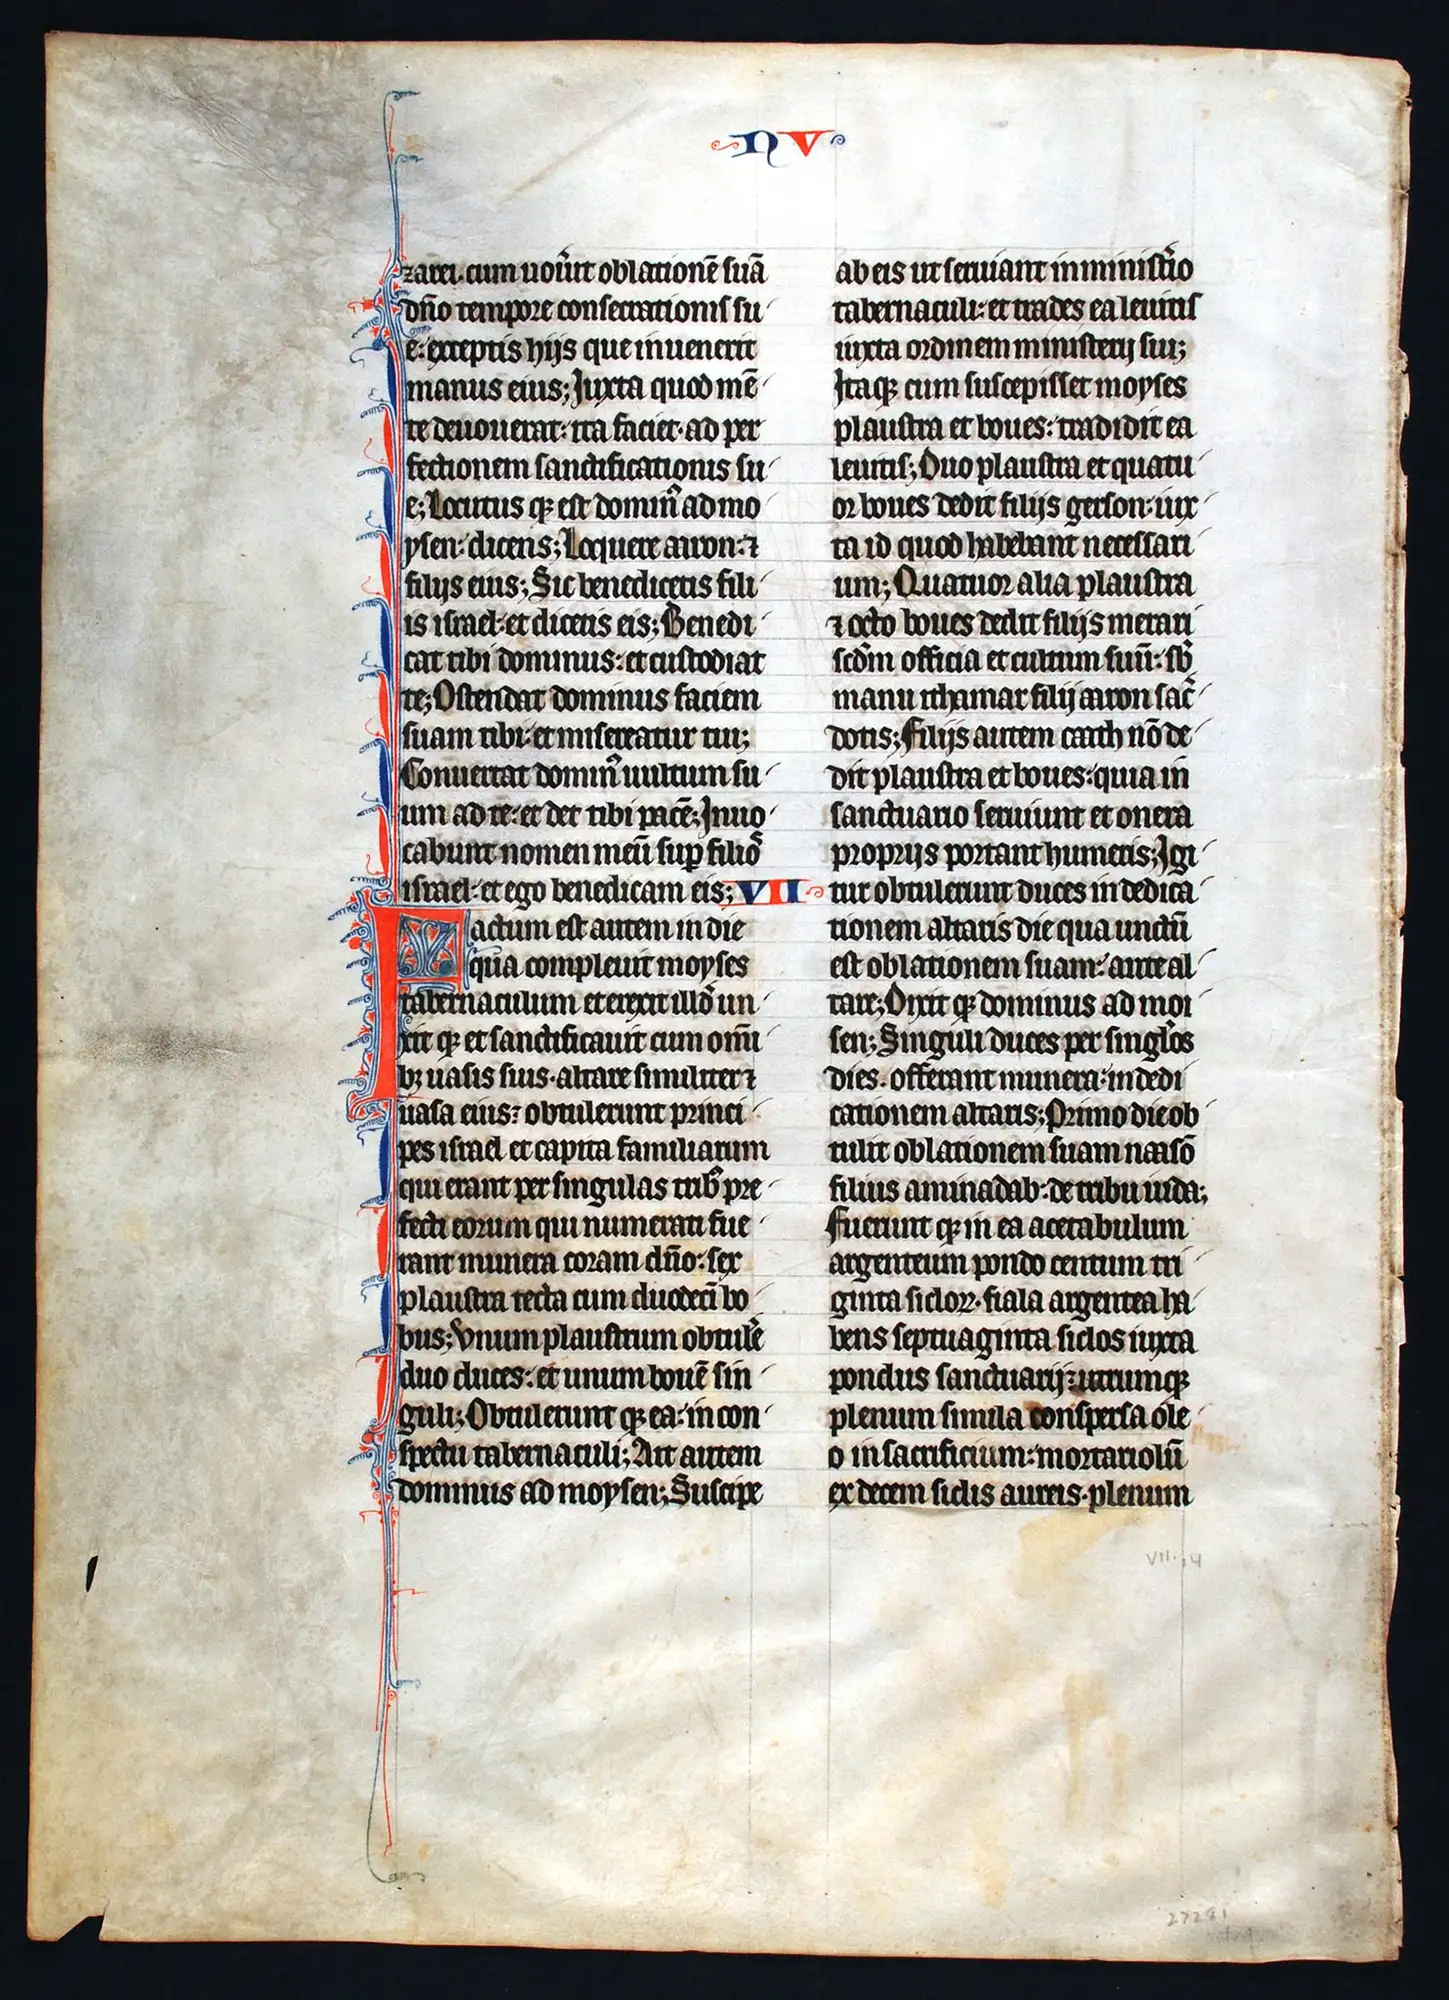 NV
zarei. cum uou͛it oblationē suā
dn̄o tempore consecrationis su
e: exceptis hijs que inuenerit
manus eius; Iuxta quod mē
te deuouerat: ita faciet. ad per
fectionem sanctificationis su
e; Locutus qꝫ est domin᷒ ad mo
ysen: dicens; Loquere aaron: ⁊
filijs eius; Sic benedicetis fili
is israel: et dicetis eis; Benedi
cat tibi dominus: et custodiat
te; Ostendat dominus faciem
suam tibi: et misereatur tui;
Conuertat domin᷒ uultum su
um ad te: et det tibi pacē; Inuo
cabunt nomen meū suꝑ filio᷒
israel: et ego benedicam eis; VII
Factum est autem in die
qua compleuit moyses
tabernaculum et erexit illd̓ un
xit qꝫ et sanctificauit cum omī
bꝫ uasis suis. altare similiter ⁊
uasa eius: obtulerunt princi
pes israel et capita familiarum
qui erant per singulas trib᷒ pre
fecti eorum qui numerati fue
rant munera coram dn̄o: sex
plaustra tecta cum duodecī bo
bus; Vnum plaustrum obtulēͬ
duo duces: et unum bouē sin
guli; Obtulerunt qꝫ ea: in con
spectu tabernaculi; Ait autem
dominus ad moysen; Suscipe
ab eis ut seruiant in minist͛io
tabernaculi: et trades ea leuitis
iuxta ordinem ministerij sui;
Itaqꝫ cum suscepisset moyses
plaustra et boues: tradidit ea
leuitis; Duo plaustra et quatu
or boues dedit filijs gerson: iux
ta id quod habebant necessari
um; Quatuor alia plaustra
⁊ octo boues dedit filijs merari
scd̄m officia et cultum suū: sb̓
manu ithamar filij aaron sac͛
dotis; Filijs autem caath nō de
dit plaustra et boues: quia in
sanctuario seruiunt et onera
proprijs portant humeris; Igi
tur obtulerunt duces in dedica
tionem altaris die qua unctū
est oblationem suam: ante al
tare; Dixit qꝫ dominus ad moi
sen; Singuli duces per singl̓os
dies. offerant munera: in dedi
cationem altaris; Primo die ob
tulit oblationem suam naasō
filius aminadab: de tribu iuda;
Fuerunt qꝫ in ea acetabulum
argenteum pondo centum tri
ginta sicloꝝ. fiala argentea ha
bens septuaginta siclos iuxta
pondus sanctuarij: utrumqꝫ
plenum simila conspersa ole
o in sacrificium: mortariolū
ex decem siclis aureis. plenum
VII. 14
27281